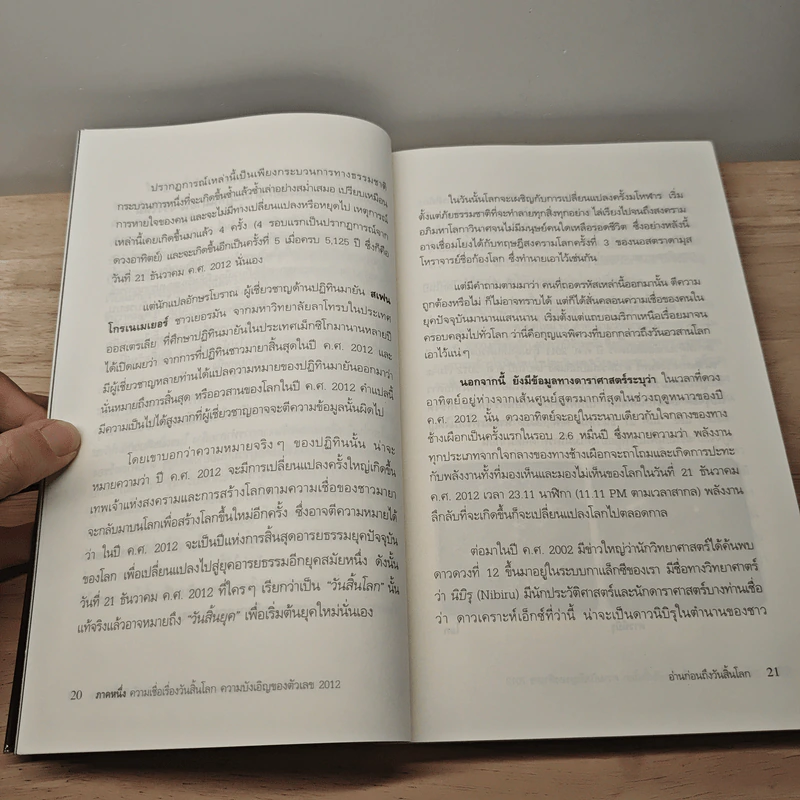 ปรากฏการณ์เหล่านี้เป็นเพียงกระบวนการทางธรรมชาติ
กระบวนการหนึ่งที่จะเกิดขึ้นซ้ำแล้วซ้ำเล่าอย่างสม่ำเสมอ เปรียบเหมือน
การหายใจของคน และจะไม่มีทางเปลี่ยนแปลงหรือหยุดไป เหตุการณ์
เหล่านี้เคยเกิดขึ้นมาแล้ว 4 ครั้ง (4 รอบแรกเป็นปรากฏการณ์จาก
ดวงอาทิตย์) และจะเกิดขึ้นอีกเป็นครั้งที่ 5 เมื่อครบ 5,125 ปี ซึ่งก็คือ
วันที่ 21 ธันวาคม ค.ศ. 2012 นั่นเอง
แต่นักแปลอักษรโบราณ ผู้เชี่ยวชาญด้านปฏิทินมายัน สเฟน
โกรเนเมเยอร์ ชาวเยอรมัน จากมหาวิทยาลัยลาโทรบในประเทศ
ออสเตรเลีย ที่ศึกษาปฏิทินมายันในประเทศเม็กซิโกมานานหลายปี
ได้เปิดเผยว่า จากการที่ปฏิทินชาวมายาสิ้นสุดในปี ค.ศ. 2012 และ
มีผู้เชี่ยวชาญหลายท่านได้แปลความหมายของปฏิทินมายันออกมาว่า
นั่นหมายถึงการสิ้นสุด หรืออวสานของโลกในปี ค.ศ. 2012 คำแปลนี้
มีความเป็นไปได้สูงมากที่ผู้เชี่ยวชาญอาจจะตีความข้อมูลนั้นผิดไป
โดยเขาบอกว่าความหมายจริงๆ ของปฏิทินนั้น น่าจะ
หมายความว่า ปี ค.ศ. 2012 จะมีการเปลี่ยนแปลงครั้งใหญ่เกิดขึ้น
เทพเจ้าแห่งสงครามและการสร้างโลกตามความเชื่อของชาวมายา
จะกลับมาบนโลกเพื่อสร้างโลกขึ้นใหม่อีกครั้ง ซึ่งอาจตีความหมายได้
ว่า ในปี ค.ศ. 2012 จะเป็นปีแห่งการสิ้นสุดอารยธรรมยุคปัจจุบัน
ของโลก เพื่อเปลี่ยนแปลงไปสู่ยุคอารยธรรมอีกยุคสมัยหนึ่ง ดังนั้น
วันที่ 21 ธันวาคม ค.ศ. 2012 ที่ใครๆ เรียกว่าเป็น “วันสิ้นโลก” นั้น
แท้จริงแล้วอาจหมายถึง “วันสิ้นยุค” เพื่อเริ่มต้นยุคใหม่นั่นเอง
20 ภาคหนึ่ง ความเชื่อเรื่องวันสิ้นโลก ความบังเอิญของตัวเลข 2012
ในวันนั้นโลกจะเผชิญกับการเปลี่ยนแปลงครั้งมโหฬาร เริ่ม
ตั้งแต่ภัยธรรมชาติที่จะทำลายทุกสิ่งทุกอย่าง ไล่เรียงไปจนถึงสงคราม
อภิมหาโลกาวินาศจนไม่มีมนุษย์คนใดเหลือรอดชีวิต ซึ่งอย่างหลังนี้
อาจเชื่อมโยงได้กับทฤษฎีสงครามโลกครั้งที่ 3 ของนอสตราดามุส
โหราจารย์ชื่อก้องโลก ซึ่งทำนายเอาไว้เช่นกัน
แต่มีคำถามตามมาว่า คนที่ถอดรหัสเหล่านี้ออกมานั้น ตีความ
ถูกต้องหรือไม่ ก็ไม่อาจทราบได้ แต่ก็ได้สั่นคลอนความเชื่อของคนใน
ยุคปัจจุบันมานานแสนนาน เริ่มตั้งแต่แถบอเมริกาเหนือเรื่อยมาจน
ครอบคลุมไปทั่วโลก ว่านี่คือกุญแจพิศวงที่บอกกล่าวถึงวันอวสานโลก
เอาไว้แน่ๆ
นอกจากนี้ ยังมีข้อมูลทางดาราศาสตร์ระบุว่า ในเวลาที่ดวง
อาทิตย์อยู่ห่างจากเส้นศูนย์สูตรมากที่สุดในช่วงฤดูหนาวของปี
ค.ศ. 2012 นั้น ดวงอาทิตย์จะอยู่ในระนาบเดียวกับใจกลางของทาง
ช้างเผือกเป็นครั้งแรกในรอบ 2.6 หมื่นปี ซึ่งหมายความว่า พลังงาน
ทุกประเภทจากใจกลางของทางช้างเผือกจะถาโถมและเกิดการปะทะ
กับพลังงานทั้งที่มองเห็นและมองไม่เห็นของโลกในวันที่ 21 ธันวาคม
ค.ศ. 2012 เวลา 23.11 นาฬิกา (11.11 PM ตามเวลาสากล) พลังงาน
ลึกลับที่จะเกิดขึ้นก็จะเปลี่ยนแปลงโลกไปตลอดกาล
ต่อมาในปี ค.ศ. 2002 มีข่าวใหญ่ว่านักวิทยาศาสตร์ได้ค้นพบ
ดาวดวงที่ 12 ขึ้นมาอยู่ในระบบกาแล็กซีของเรา มีชื่อทางวิทยาศาตร์
ว่า นิบิรุ (Nibiru) มีนักประวัติศาสตร์และนักดาราศาสตร์บางท่านเชื่อ
ว่า ดาวเคราะห์เอ็กซ์ที่ว่านี้ น่าจะเป็นดาวนิบิรุในตำนานของชาว
อ่านก่อนถึงวันสิ้นโลก 21